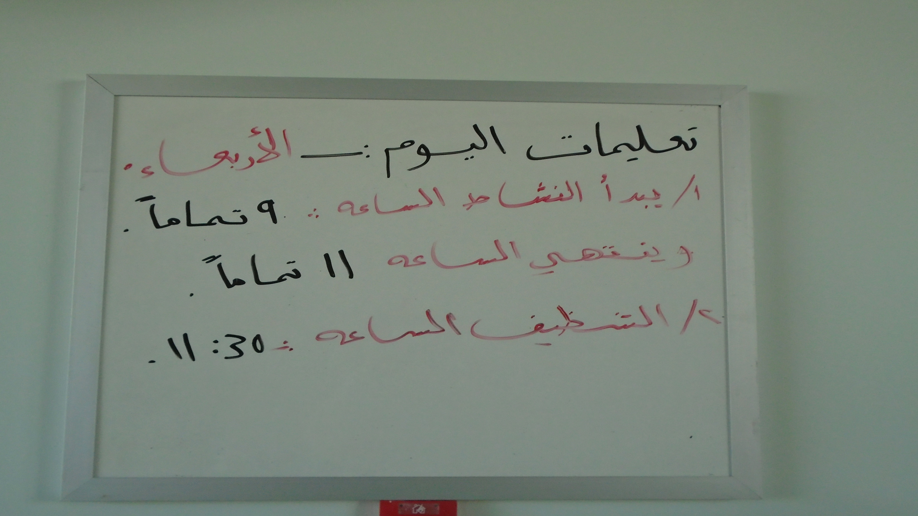 تعليمات اليوم :ـ الأربعاء.
١/ يبدأ النشاط الساعه :. ٩ تماماً.
وينتهي الساعه ١١ تماماً.
٢/ التنظيف الساعه :. 11:30.